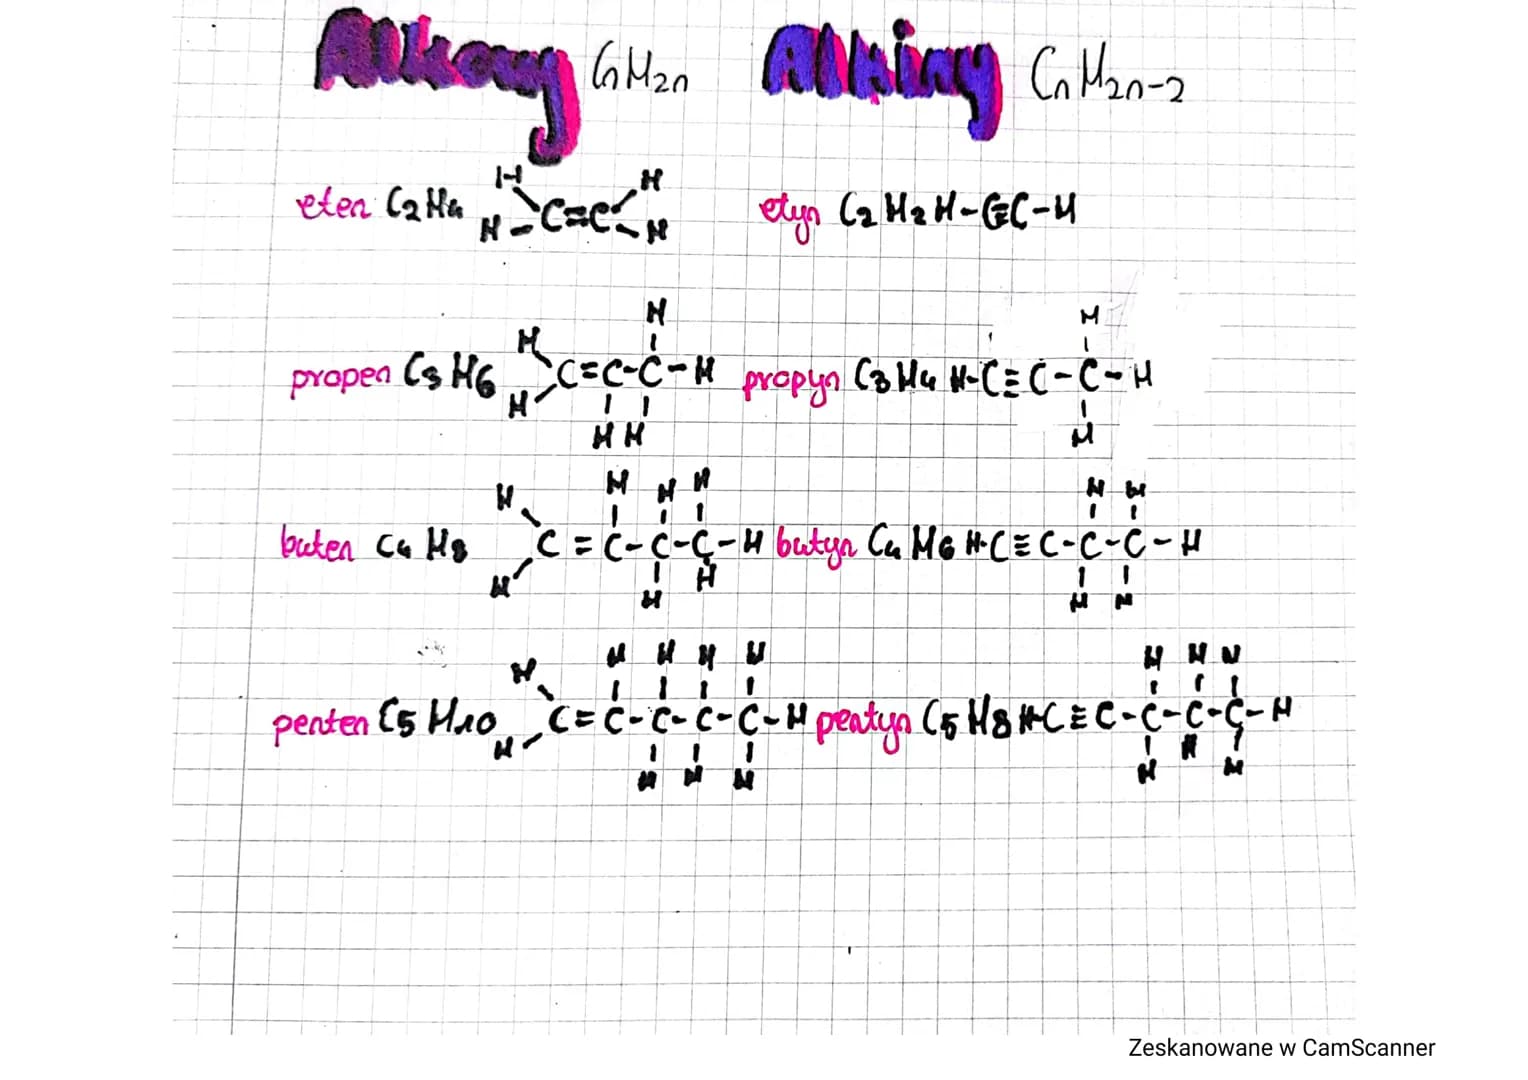 Alkeny CnH2n
Alkiny CnH2n-2
eten C2H4
H H
H - C = C - H
etyn C2H2 H-C≡C-H
propen C3H6
H H
C=C-C-H
H
H H
propyn C3H4 H-C≡C-C-H
H
H
buten C4H8
H H H H
C = C-C-C-H
H H H
butyn C4H6 H-C≡C-C-C-H
H H
H H
penten C5H10
H H H H H
C=C-C-C-C-H
H H H H
pentyn C5H8 H-C≡C-C-C-C-H
H H H
H H H
Zeskanowane w CamScanner